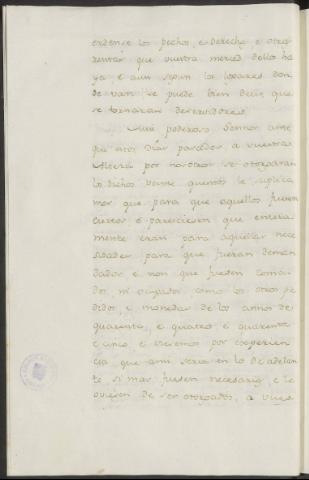 erdense los pechos, e derechos, e otras
rentas que vuestra merced dellos ha
ya, e aun segun los logares don
de van se puede bien decir que
se tornaran derrevidores.
Mui poderoso Sennor ante
que aios dias pasados a vuestra
Alteza por nosotros se otorgaran
los dichos veinte quentos le suplica
mos que para que aquellos fuesen
ciertos, e pareciesen que entera
mente eran para aquellas nece
sidades para que fueran deman
dados e non que fuesen toma
dos, ni ocupados, como los otros pe
didos, e monedas de los annos de
quarenta, e quatro e quarenta
e cinco, e creemos por experien
cia que ansi seria en lo de adelan
te, si mas fuesen necesario, e le
oviesen de ser otorgados, a vues